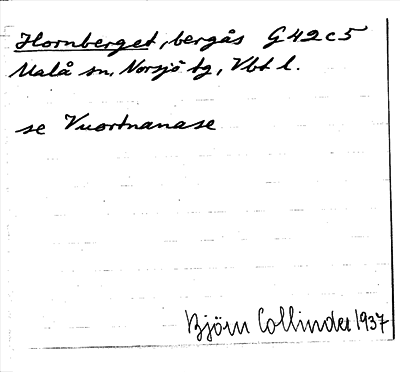 Hornberget, bergås G 42 c 5
Malå sn, Norsjö tg, Vbt l.
se Vuortnanase
Björn Collinder 1937